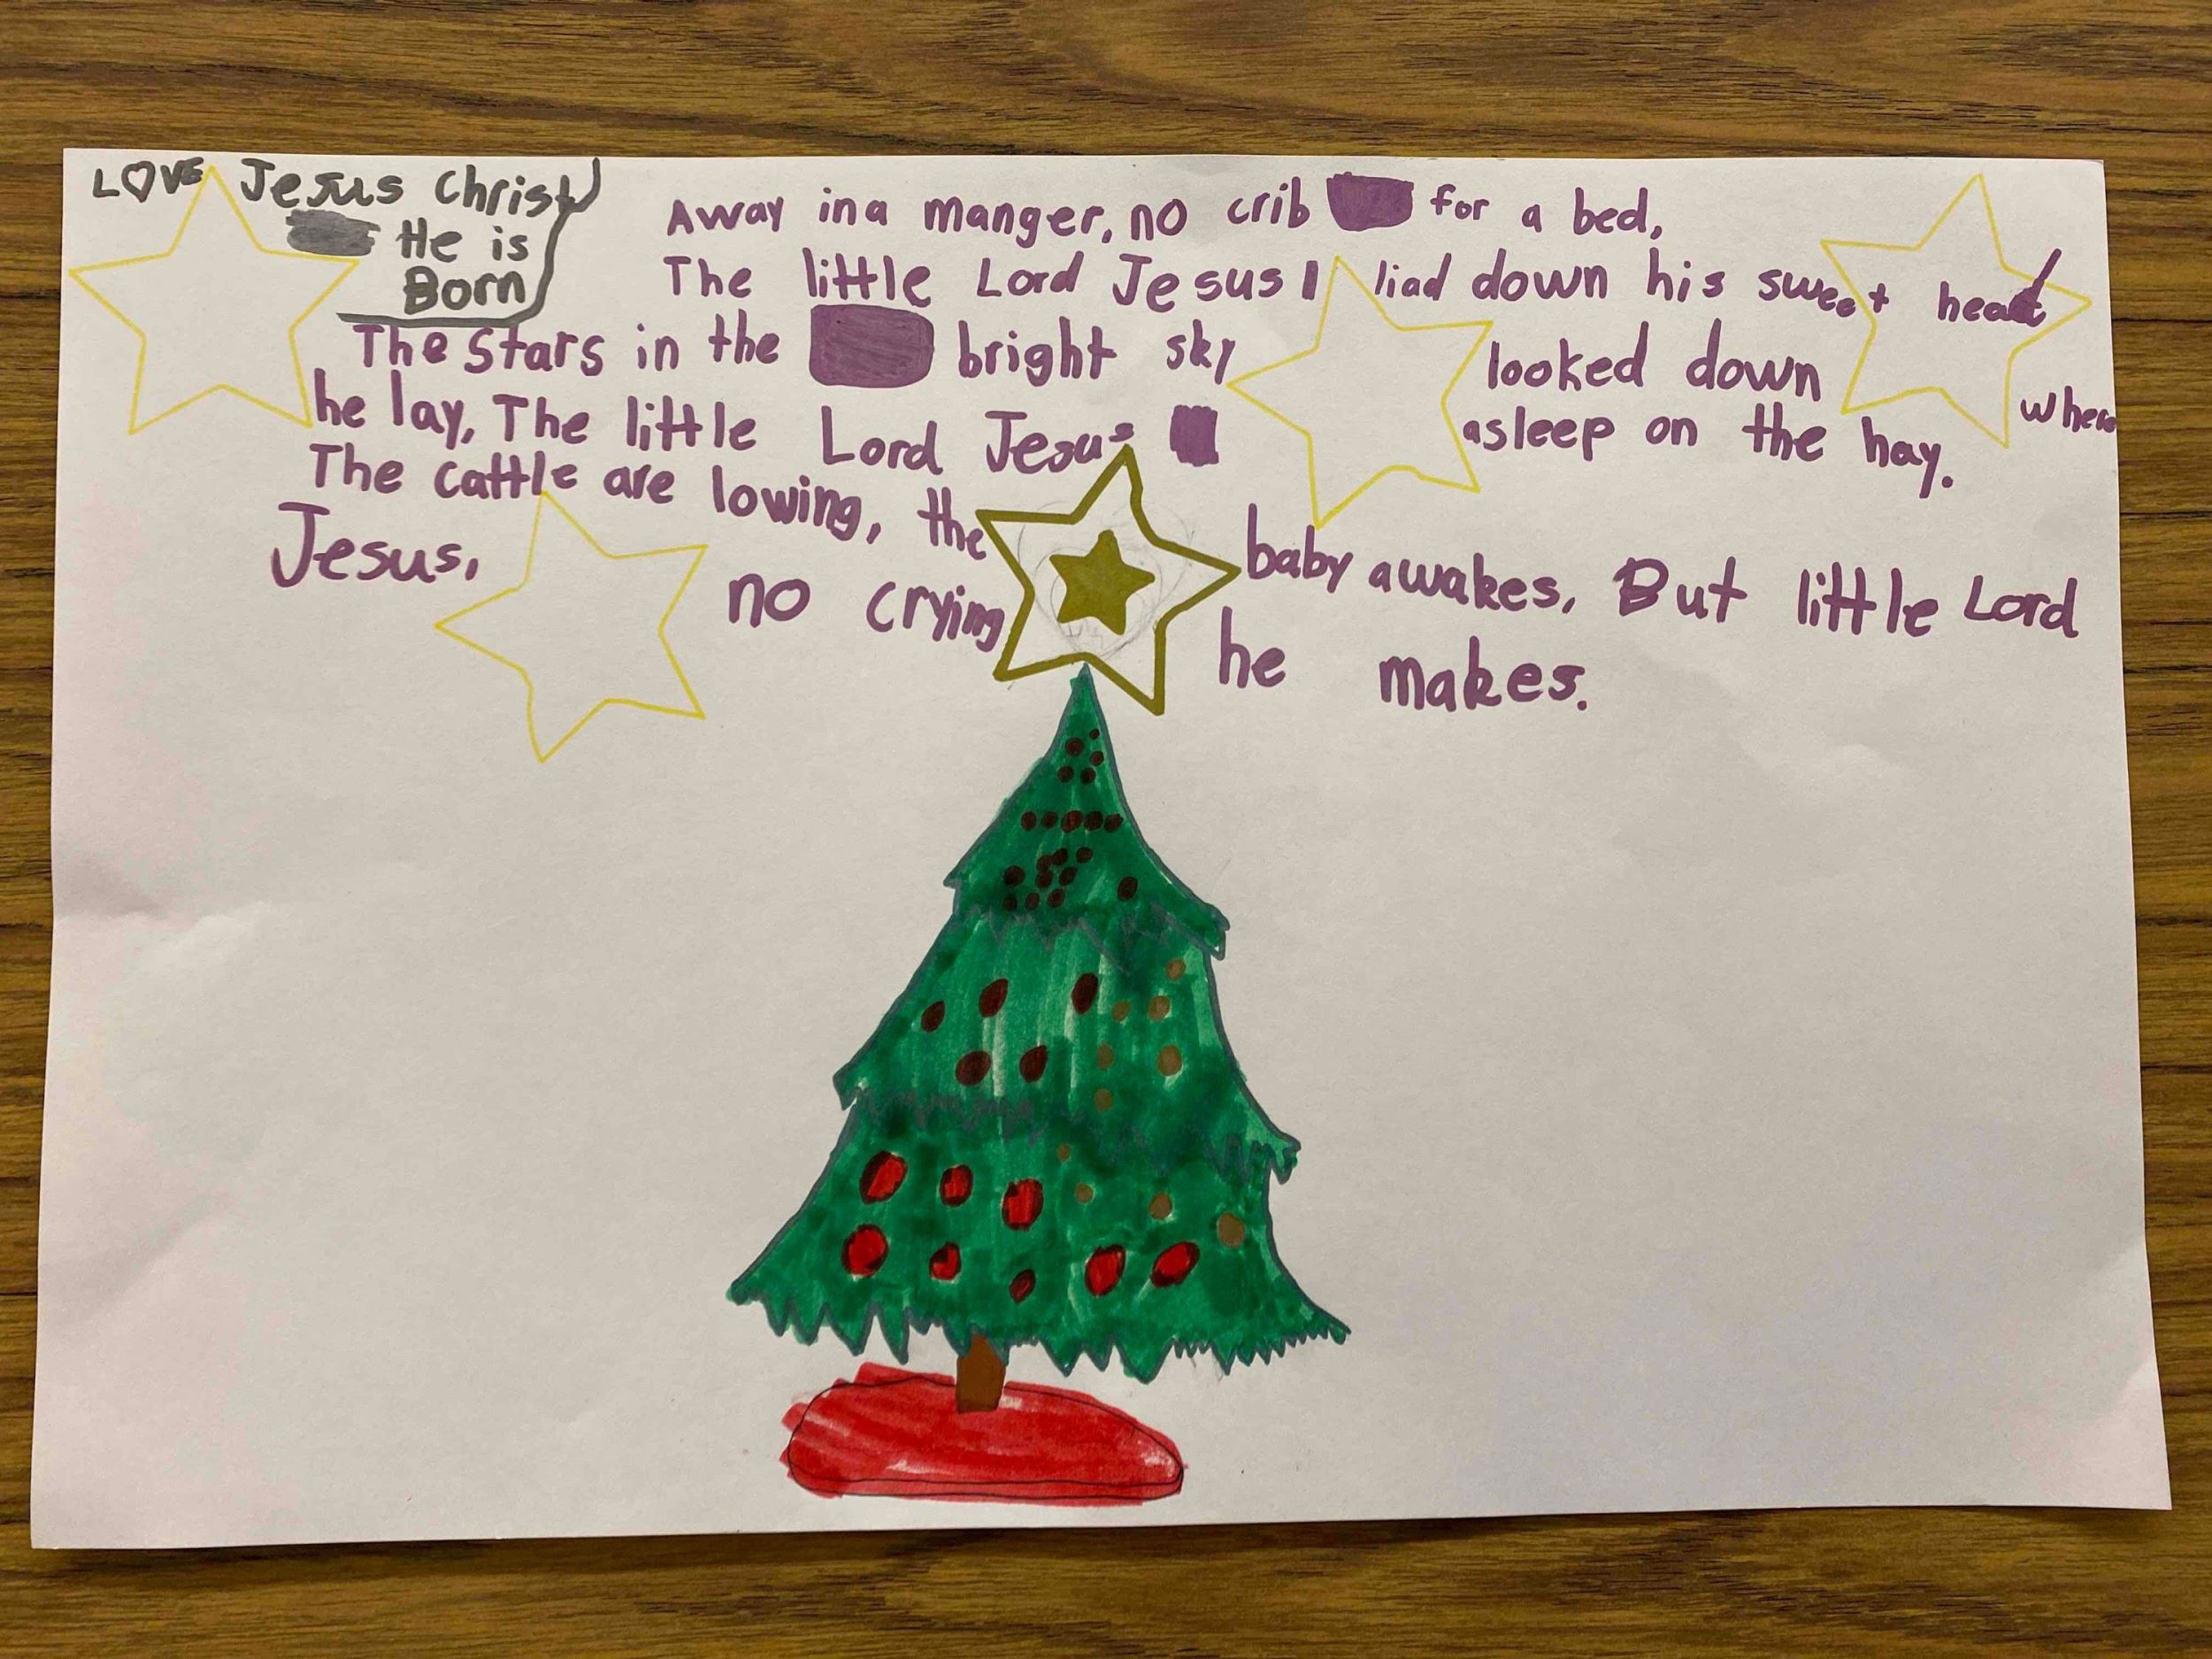 LOVE Jesus Christ
He is
Born
Away in a manger, no crib for a bed,
The little Lord Jesus liad down his sweet head
The stars in the bright sky looked down where
he lay, The little Lord Jesus asleep on the hay.
The cattle are lowing, the baby awakes, But little Lord
Jesus, no crying he makes.